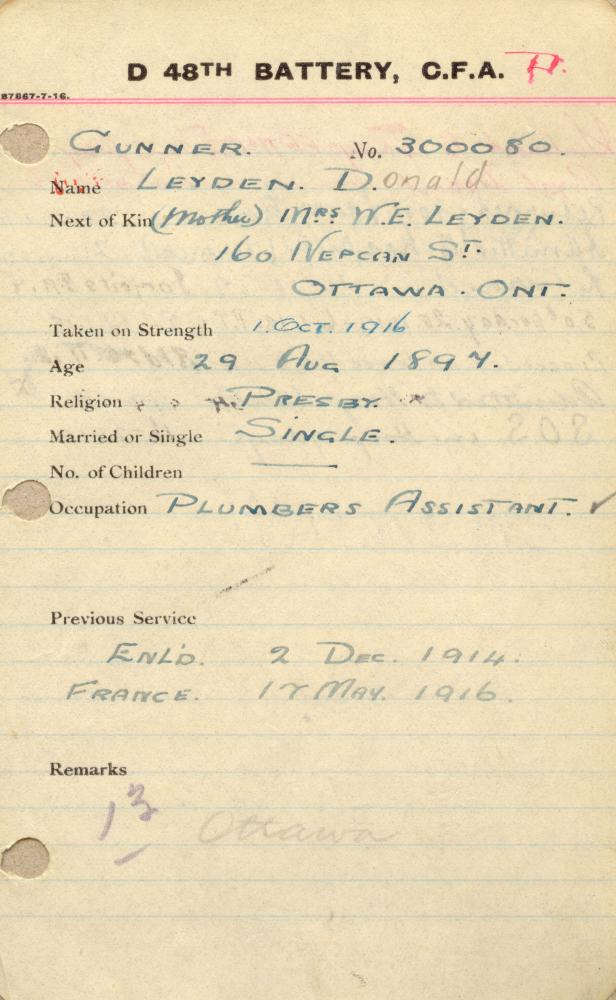 D 48TH BATTERY, C.F.A. P.
87867-7-16.
GUNNER. No. 300080.
Name LEYDEN. Donald
Next of Kin (Mother) MRS W.E. LEYDEN.
160 NEPEAN ST.
OTTAWA. ONT.
Taken on Strength 1. OCT. 1916
Age 29 AUG 1897.
Religion PRESBY.
Married or Single SINGLE.
No. of Children —
Occupation PLUMBERS ASSISTANT. ✓
Previous Service
ENL'D. 2 DEC. 1914.
FRANCE. 17 MAY. 1916.
Remarks
13
Ottawa